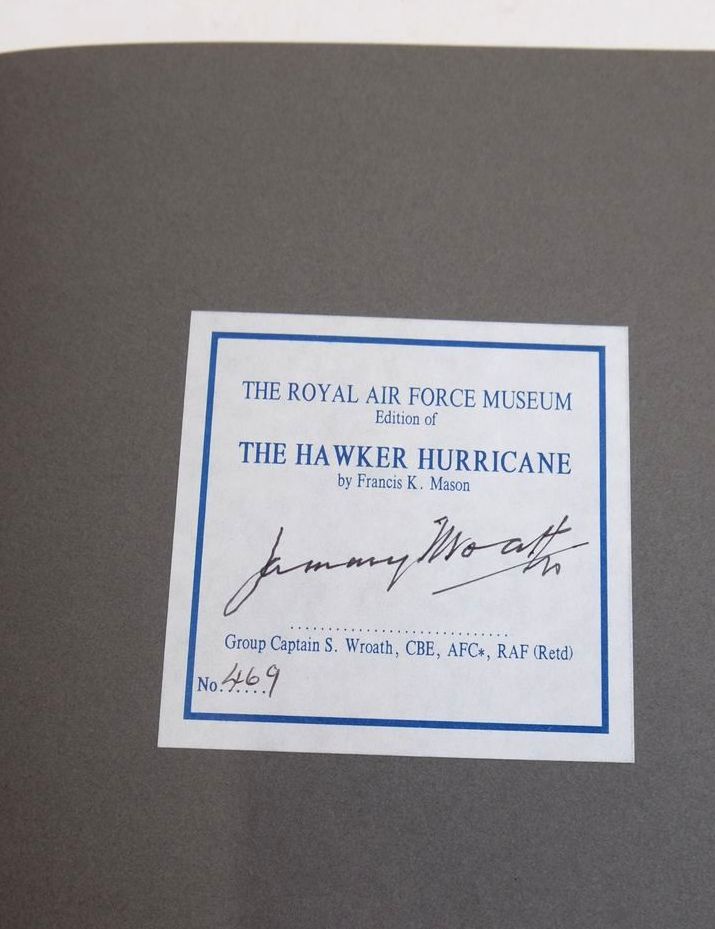 THE ROYAL AIR FORCE MUSEUM
Edition of
THE HAWKER HURRICANE
by Francis K. Mason
Sammy Wroath
Group Captain S. Wroath, CBE, AFC*, RAF (Retd)
No. 469